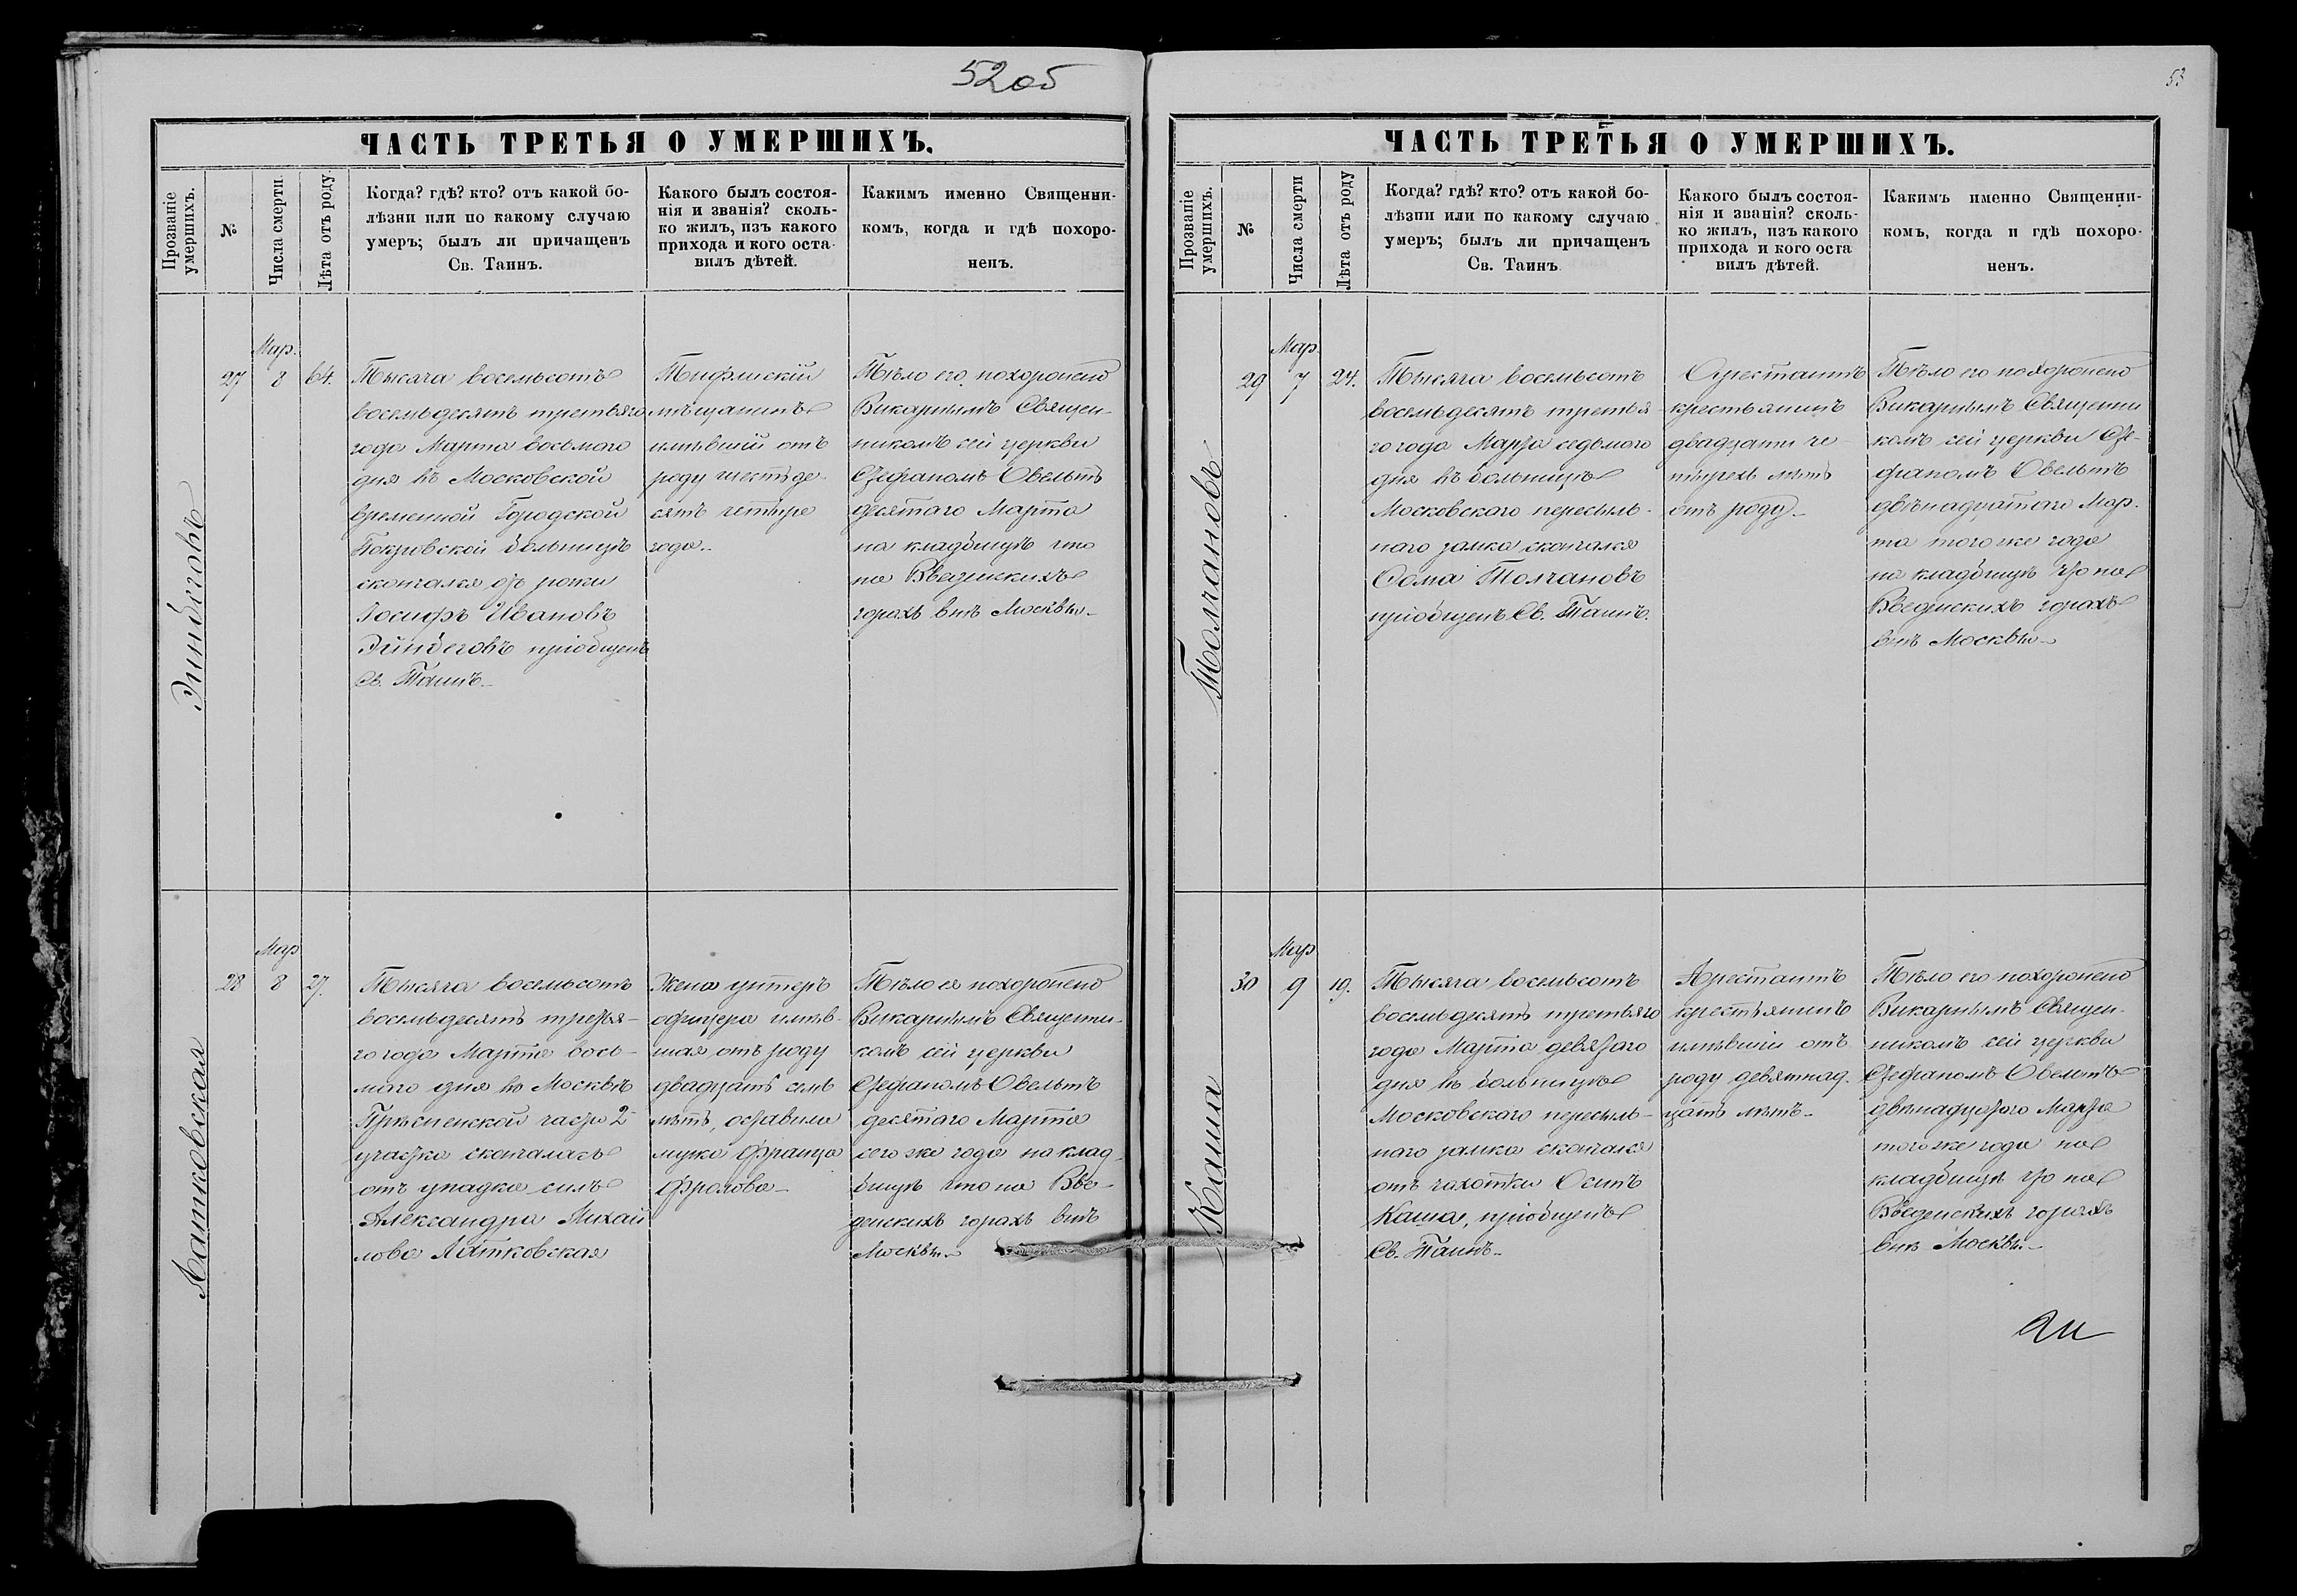 52 об
ЧАСТЬ ТРЕТЬЯ О УМЕРШИХЪ.
Прозваніе
умершихъ.
№
Числа смерти.
Лѣта отъ роду
Когда? гдѣ? кто? отъ какой бо-
лѣзни или по какому случаю
умеръ; былъ ли причащенъ
Св. Таинъ.
Какого былъ состоя-
нія и званія? сколь-
ко жилъ, изъ какого
прихода и кого оста-
вилъ дѣтей.
Каким​ъ именно Священни-
комъ, когда и гдѣ похоро-
ненъ.
Мар.
27
8
64.
Тысяча восемьсотъ
восемьдесятъ третьяго
года Марта восьмого
дня въ Московской
временной Городской
Покровской больницѣ
скончался отъ рожи
Іосифъ Ивановъ
Эйнбеговъ пріобщенъ
Св. Таинъ.
Тифлискій
мѣщанинъ
имѣвшій отъ
роду шестьде-
сятъ четыре
года.
Тѣло его похоронено
Викарнымъ Священ-
никомъ сей церкви
Стефаномъ Овельтъ
десятаго Марта
на кладбищѣ что
на Введенскихъ
горахъ внѣ Москвы.
Мар
28
8
27.
Тысяча восемьсотъ
восемьдесятъ третья-
го года Марта вось-
маго дня въ Москвѣ
Прѣсненской части 2
участка скончалась
отъ упадка силъ
Александра Михай
лова Латковская
Латковская
Жена унтеръ
офицера имѣв-
шая отъ роду
двадцать семь
лѣтъ, оставила
мужа Франца
Фролова
Тѣло ея похоронено
Викарнымъ Священни-
комъ сей церкви
Стефаномъ Овельтъ
десятаго Марта
сего же года на клад-
бищѣ что на Вве-
денскихъ горахъ внѣ
Москвы.
53
ЧАСТЬ ТРЕТЬЯ О УМЕРШИХЪ.
Прозваніе
умершихъ.
№
Числа смерти
Лѣта отъ роду
Когда? гдѣ? кто? отъ какой бо-
лѣзни или по какому случаю
умеръ; былъ ли причащенъ
Св. Таинъ
Какого былъ состоя-
нія и званія? сколь-
ко жилъ, изъ какого
прихода и кого оста
вилъ дѣтей.
Какимъ именно Священни-
комъ, когда и гдѣ похоро-
ненъ.
Толчановъ
Мар
29
7
24.
Тысяча восемьсотъ
восемьдесятъ третья
го года Марта седьмого
дня въ больницѣ
Московскаго пересыль-
наго замка скончался
Фома Толчановъ
пріобщенъ Св. Таинъ.
Арестантъ
крестьянинъ
двадцати че-
тырехъ лѣтъ
отъ роду
Тѣло его похоронено
Викарнымъ Священни
комъ сей церкви Сте-
фаномъ Овельтъ
двѣнадцатаго Мар-
та того же года
на кладбищѣ что на
Введенскихъ горахъ
внѣ Москвы
Каша
Мар
30
9
19.
Тысяча восемьсотъ
восемьдесятъ третьяго
года Марта девятаго
дня въ больницѣ
Московскаго пересыль-
наго замка скончался
отъ чахотки Осипъ
Каша, пріобщенъ
Св. Таинъ
Арестантъ
крестьянинъ
имѣвшій отъ
роду девятнад-
цать лѣтъ
Тѣло его похоронено
Викарнымъ Священ-
никомъ сей церкви
Стефаномъ Овельтъ
двѣнадцатаго Марта
того же года на
кладбищѣ что на
Введенскихъ горахъ
внѣ Москвы.